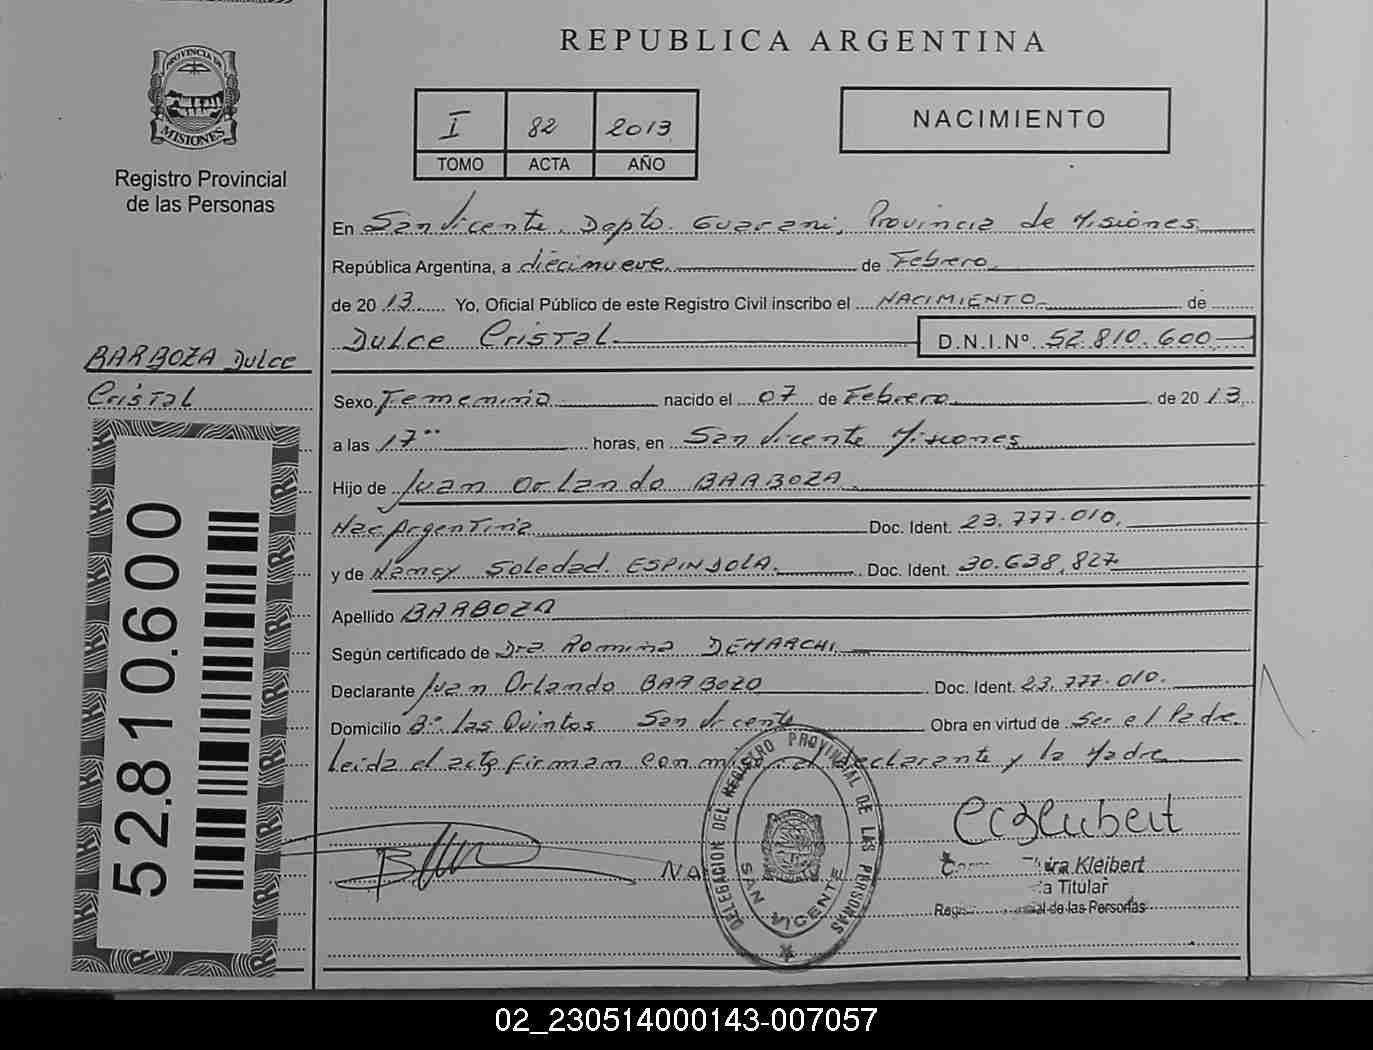 PROVINCIA DE
MISIONES
Registro Provincial
de las Personas
BARBOZA Dulce
Cristal
52.810.600
REPUBLICA ARGENTINA
I 82 2013
TOMO ACTA AÑO
NACIMIENTO
En San Vicente. Depto. Guarani, Provincia de Misiones
República Argentina, a diecinueve de Febrero
de 2013 Yo, Oficial Público de este Registro Civil inscribo el NACIMIENTO de
Dulce Cristal D.N.I.Nº 52.810.600
Sexo Femenina nacido el 07 de Febrero de 2013
a las 17 horas, en San Vicente Misiones
Hijo de Juan Orlando BARBOZA
Nac Argentina Doc. Ident. 23.777.010
y de Nancy Soledad ESPINDOLA Doc. Ident. 30.638.827
Apellido BARBOZA
Según certificado de Dra Romina DEMARCHI
Declarante Juan Orlando BARBOZA Doc. Ident. 23.777.010.
Domicilio Bº. Las Quintas San Vicente Obra en virtud de Ser el Padre
Leida el acta firman conmigo el declarante y la Madre
DELEGACION DEL REGISTRO PROVINCIAL DE LAS PERSONAS
SAN VICENTE
Kleibert
Titular
de las Personas
02_230514000143-007057